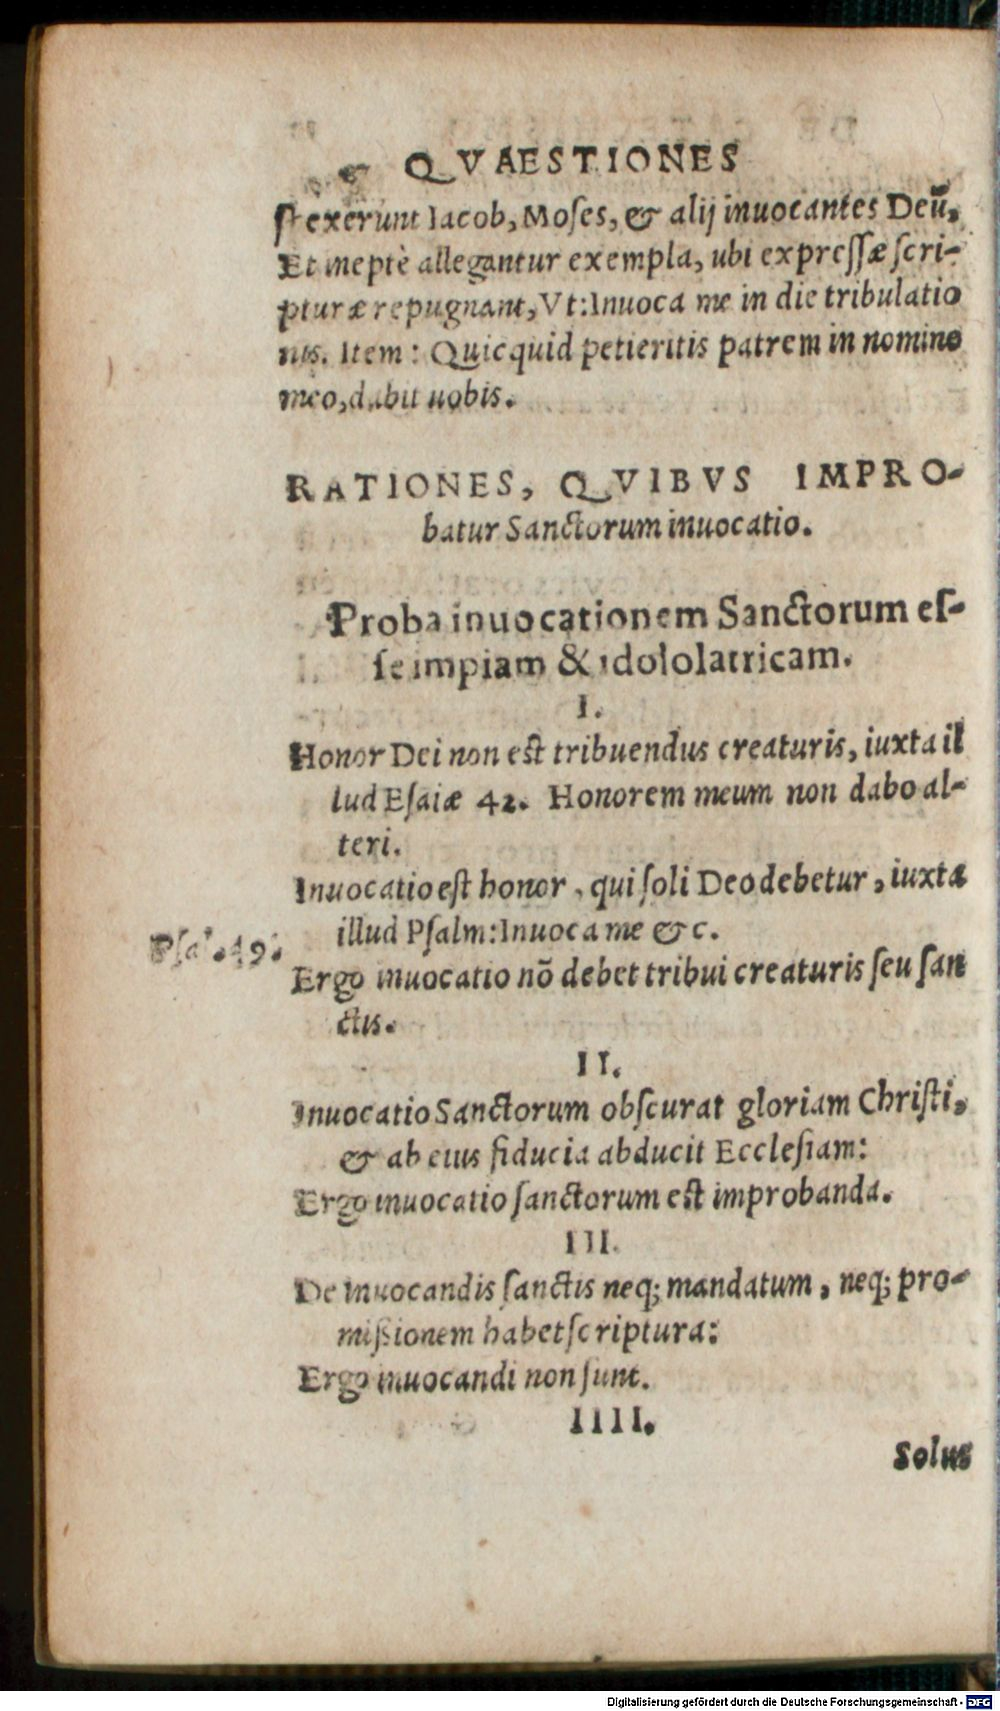 QVAESTIONES
spexerunt Iacob, Moses, & alij inuocantes Deū,
Et ineptè allegantur exempla, ubi expressæ scri-
pturæ repugnant, Vt: Inuoca me in die tribulatio
nis. Item: Quicquid petieritis patrem in nomine
meo, dabit uobis.
RATIONES, QVIBVS IMPRO-
batur Sanctorum inuocatio.
Proba inuocationem Sanctorum es-
se impiam & idololatricam.
I.
Honor Dei non est tribuendus creaturis, iuxta il
lud Esaiæ 42. Honorem meum non dabo al-
teri.
Inuocatio est honor, qui soli Deo debetur, iuxta
illud Psalm: Inuoca me &c.
Psal. 49.
Ergo inuocatio nō debet tribui creaturis seu san
ctis.
II.
Inuocatio Sanctorum obscurat gloriam Christi,
& ab eius fiducia abducit Ecclesiam:
Ergo inuocatio sanctorum est improbanda.
III.
De inuocandis sanctis neq; mandatum, neq; pro-
mißionem habet scriptura:
Ergo inuocandi non sunt.
IIII.
Solus
Digitalisierung gefördert durch die Deutsche Forschungsgemeinschaft - DFG